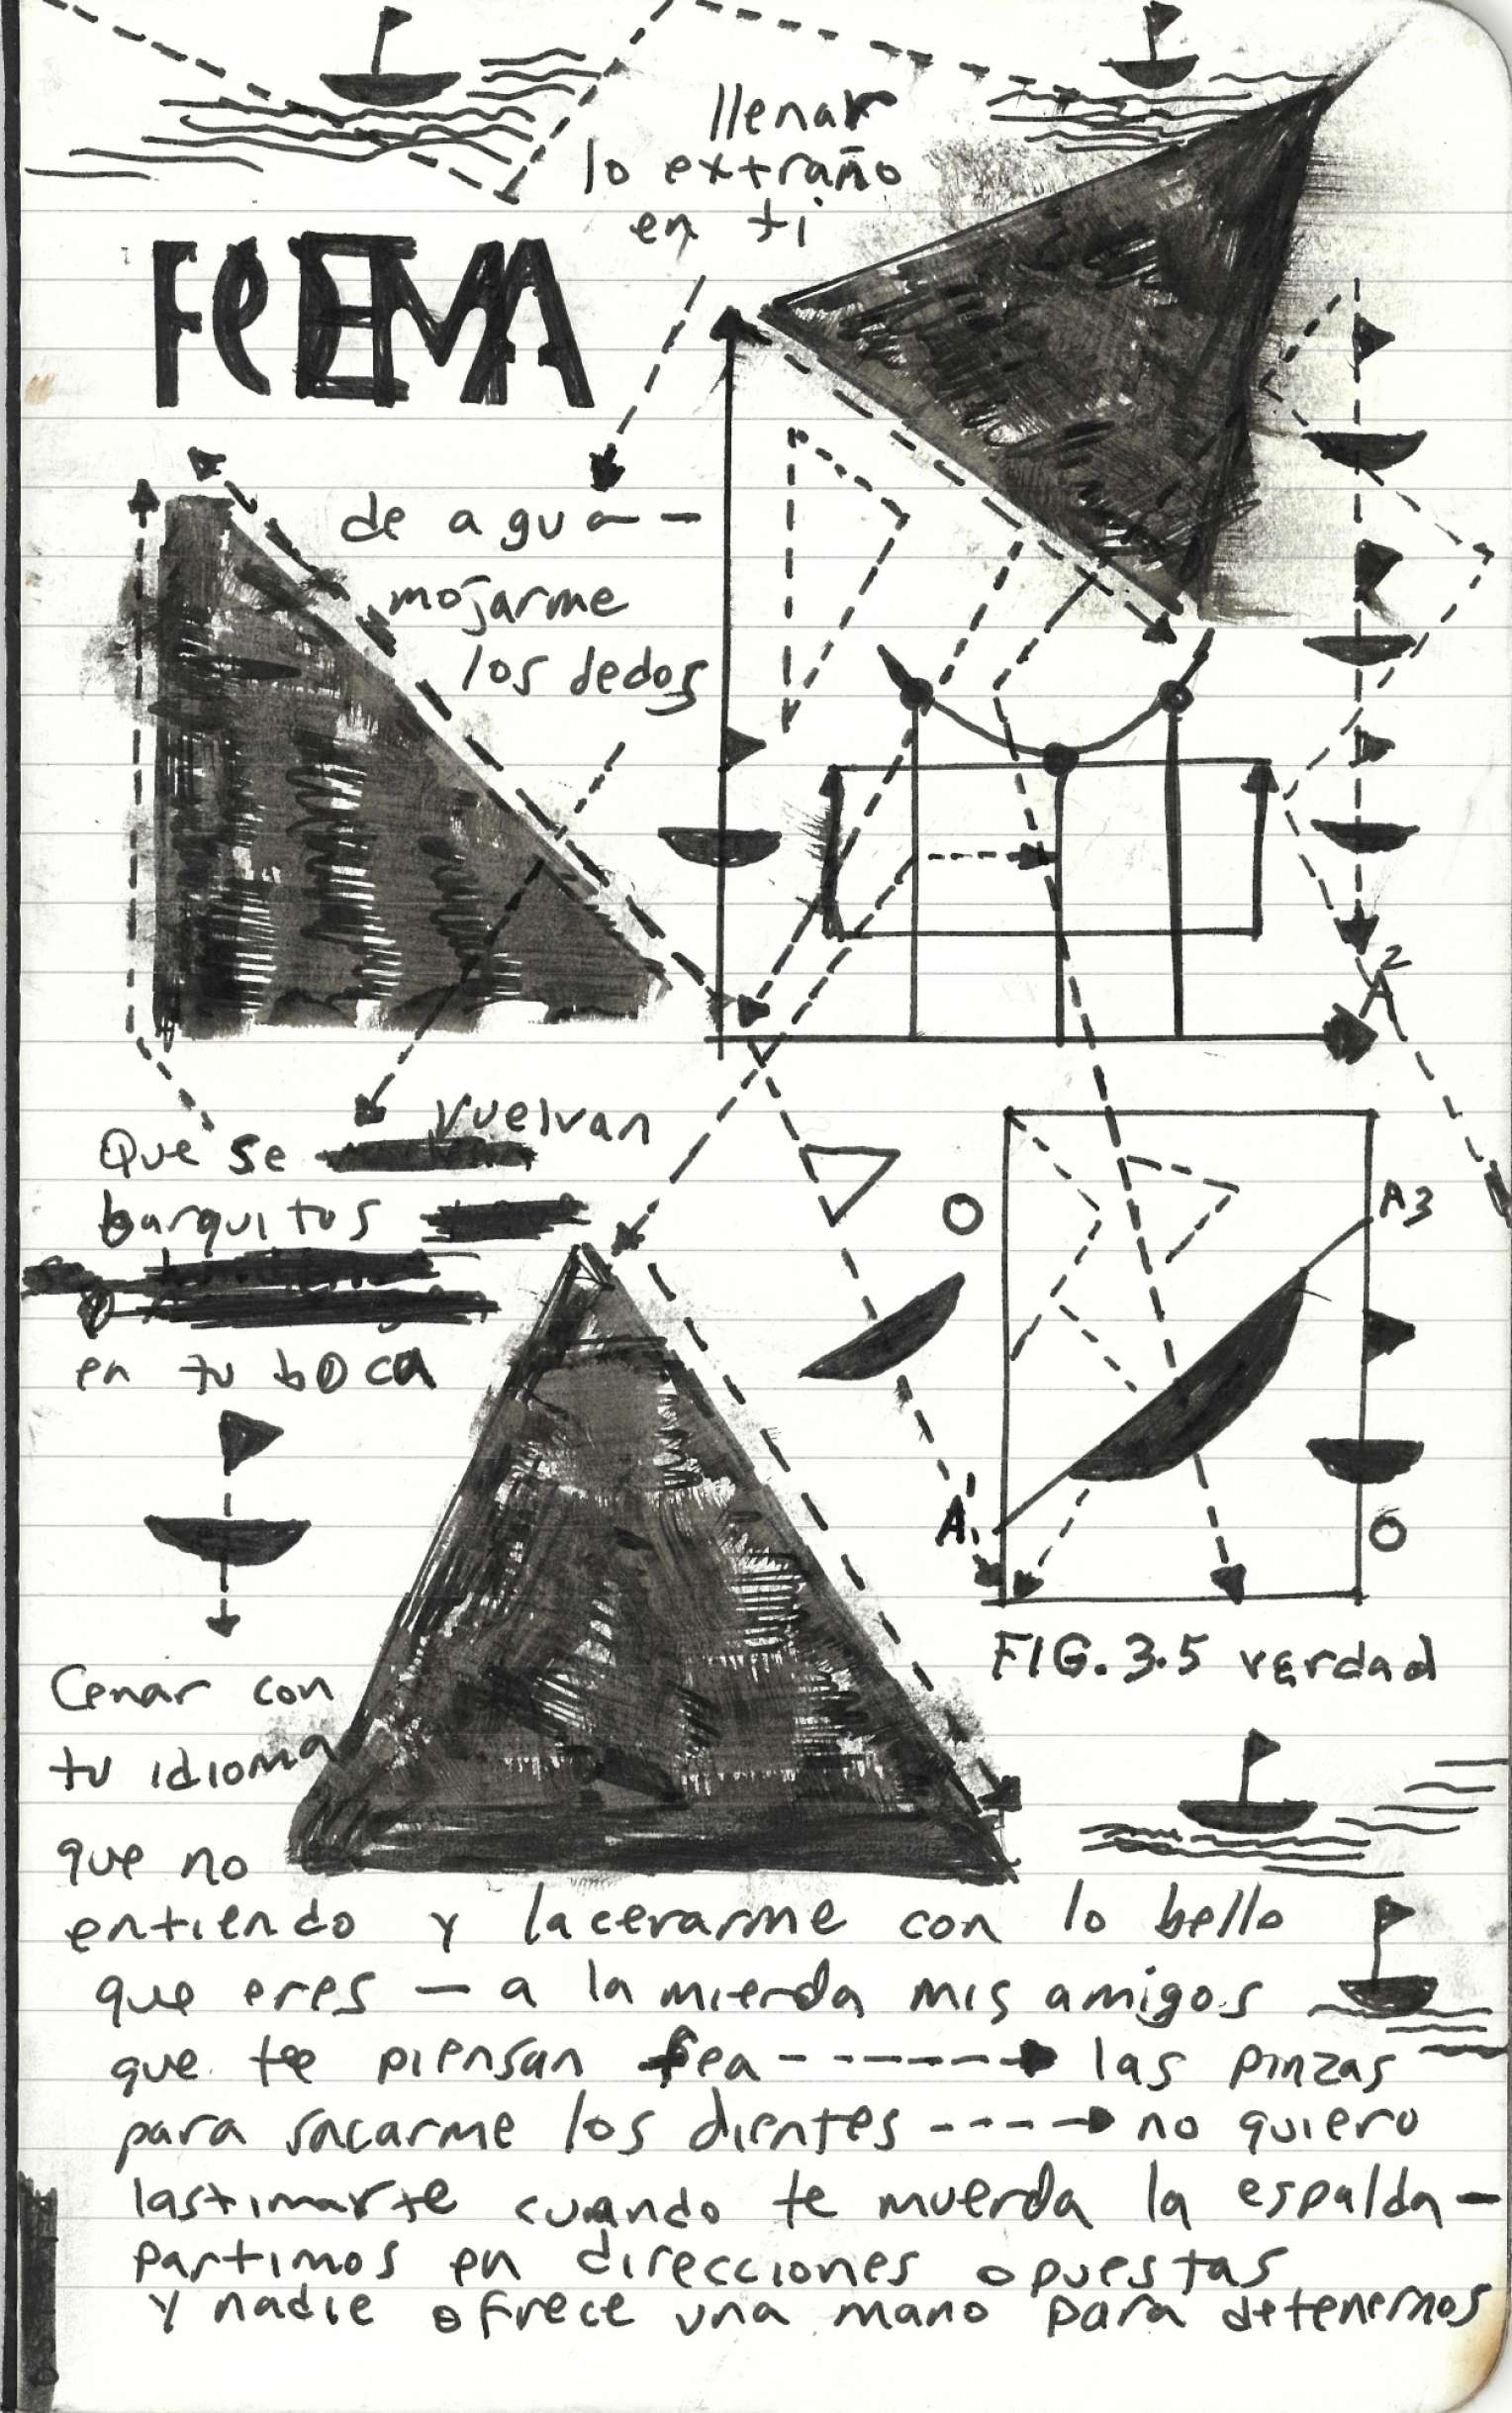 llenar
lo extraño
en ti
de agua --
mojarme
los dedos
Que se vuelvan
barquitos
en tu boca
A2
A3
A1
FIG. 3.5 verdad
Cenar con
tu idioma
que no
entiendo y lacerarme con lo bello
que eres — a la mierda mis amigos
que te piensan fea -----> las pinzas
para sacarme los dientes ----> no quiero
lastimarte cuando te muerda la espalda —
partimos en direcciones opuestas
y nadie ofrece una mano para detenernos